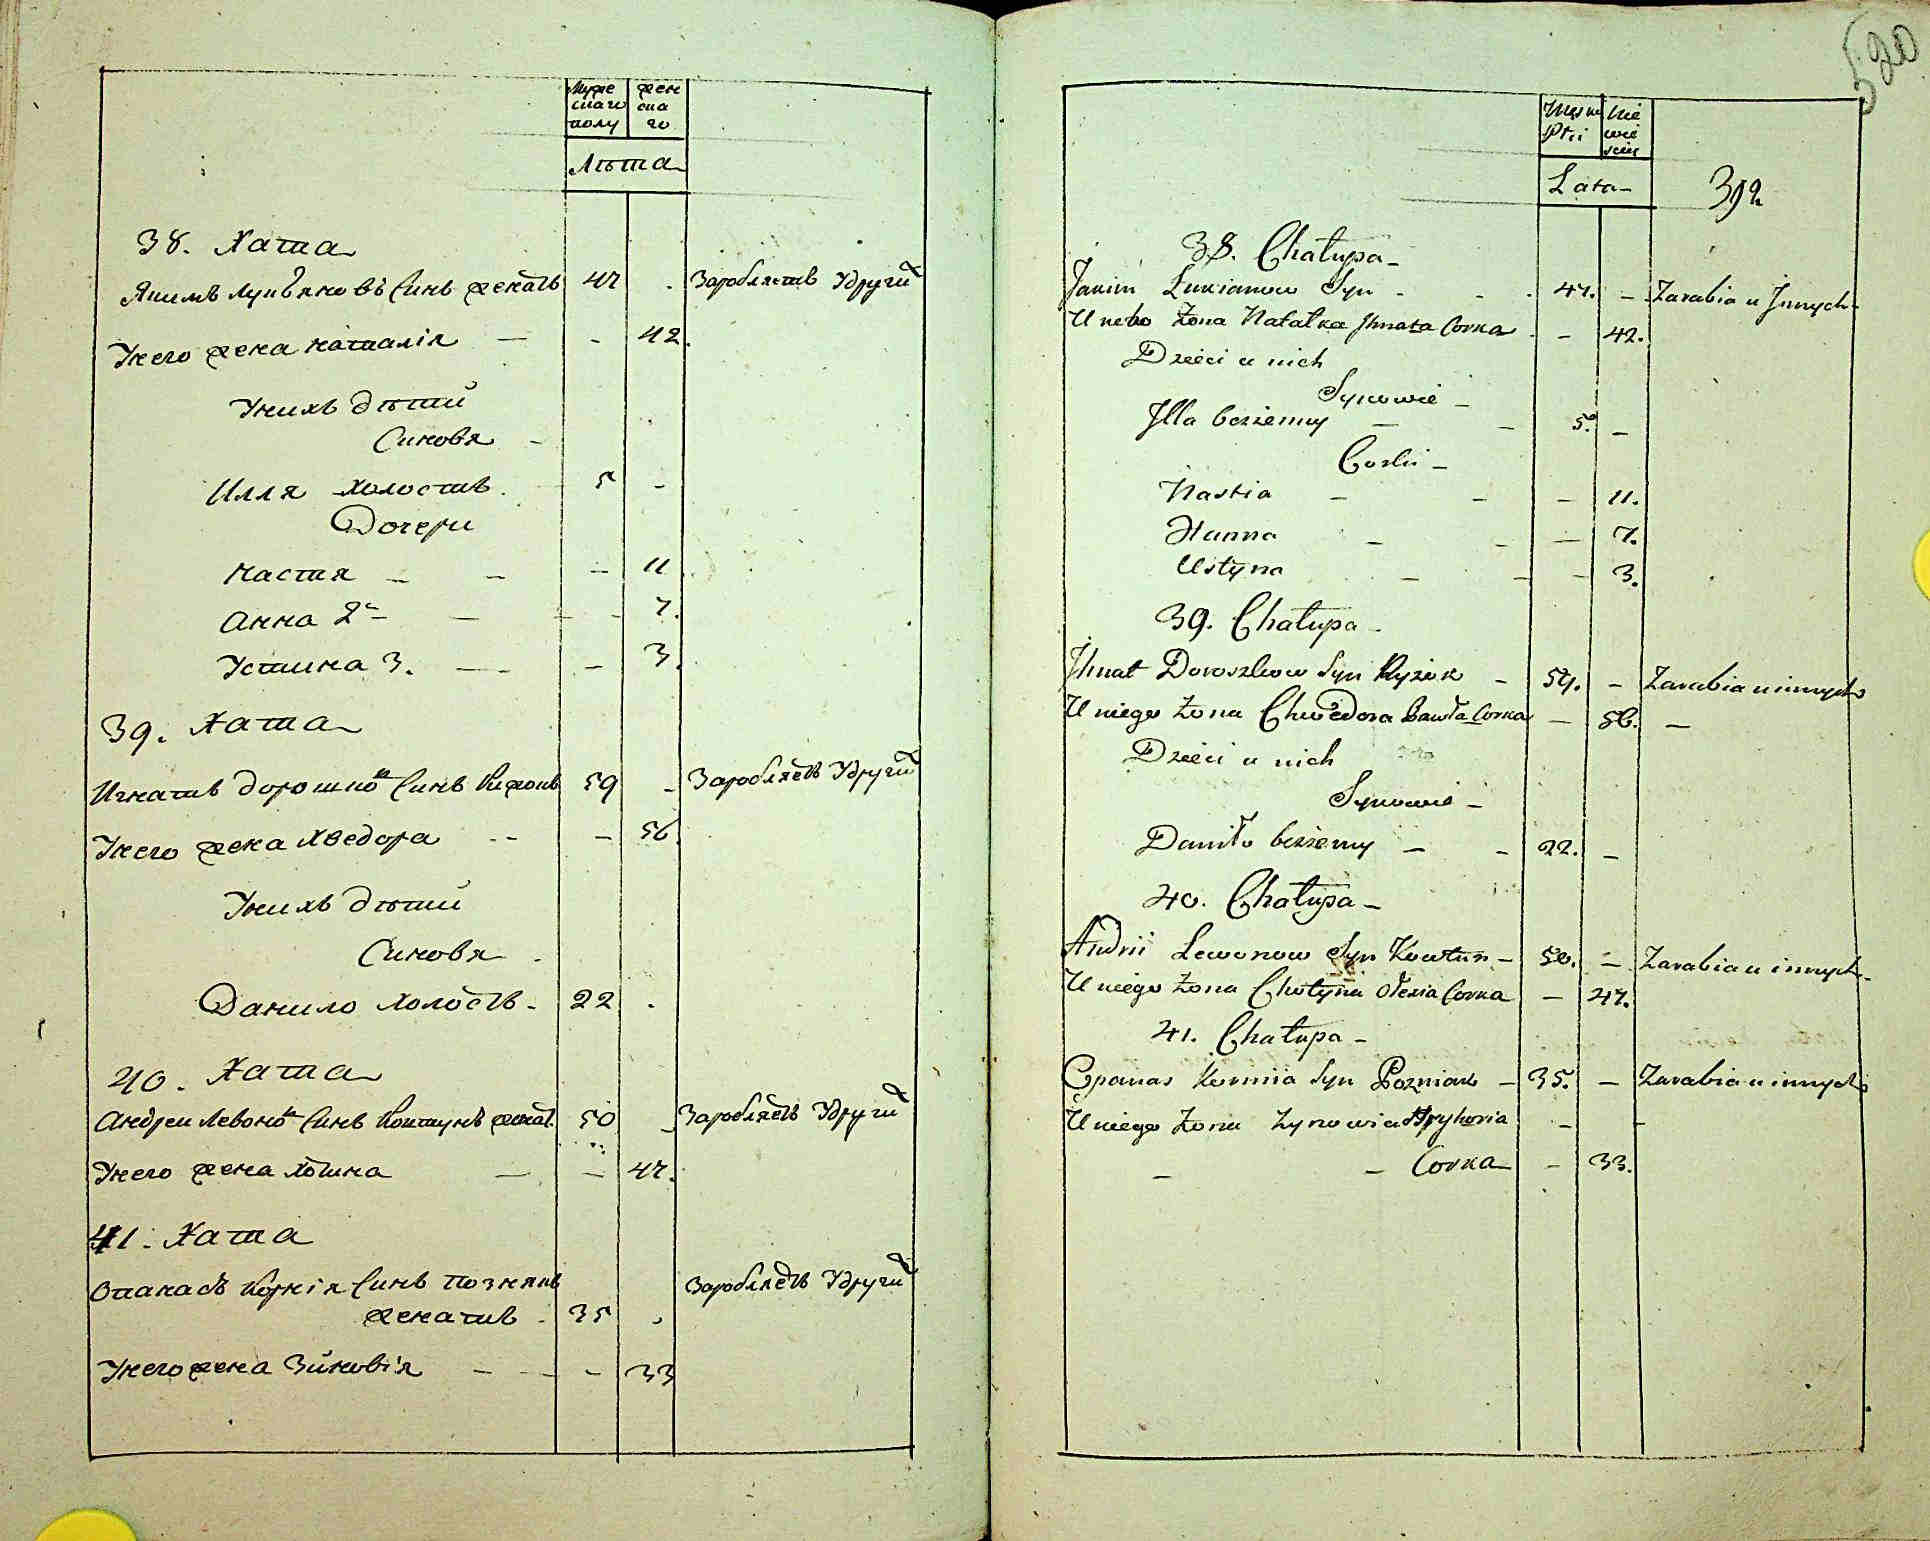 Муже ского полу
жен ска го
Лѣта
38. Хата
Якимъ лукъяновъ Синъ женатъ 47 . Заробляетъ Удругий
Унего жена наталія — - 42.
Унихъ дѣтий
Синовя -
Илля холостъ. 5 -
Дочери
настя - - - 11
Анна 2я - - - 7.
Устина 3. - - - 3.
39. Хата
Игнатъ дорошко Синъ Кижокъ 59 - Заробляетъ Удругий
Унего жена хведора - - - 56
Унихъ дѣтий
Синовя -
Данило холостъ - 22 .
40. Хата
Андреи левоно Синъ Ковтунъ женат. 50 - Заробляетъ Удругий
Унего жена хотина - - 47.
41. Хата
Опанасъ Корнія Синъ познякъ Заробляетъ Удругий
женатъ - 35 .
Унего жена Зиновія - - - - 33
520
Męskiej Płci
Nie wie sciej
Lata - 392
38. Chałupa -
Jakim Łukianow Syn - - - 47. - Zarabia u Jnnych -
U neho Żona Natalka Jhnata Corka - - 42.
Dzieci u nich
Synowie -
Jlla bezżenny - - 5. -
Corki -
Nastia - - - 11.
Hanna - - - 7.
Ustyna - - - 3.
39. Chałupa -
Jhnat Doroszkow Syn Kyżek - 59. - Zarabia u innych
U niego Żona Chwedora Pawła Corka - 56. -
Dzieci u nich
Synowie -
Daniło bezżenny - - 22. -
40. Chałupa -
Andrii Lewonow Syn Kowtun - 50. - Zarabia u innych -
U niego Żona Chotyna Ołexia Corka - 47.
41. Chałupa -
Opanas Korniia Syn Pozniak - 35. - Zarabia u innych
U niego Żona Zynowia Hryhoria - -
- - Corka - - 33.